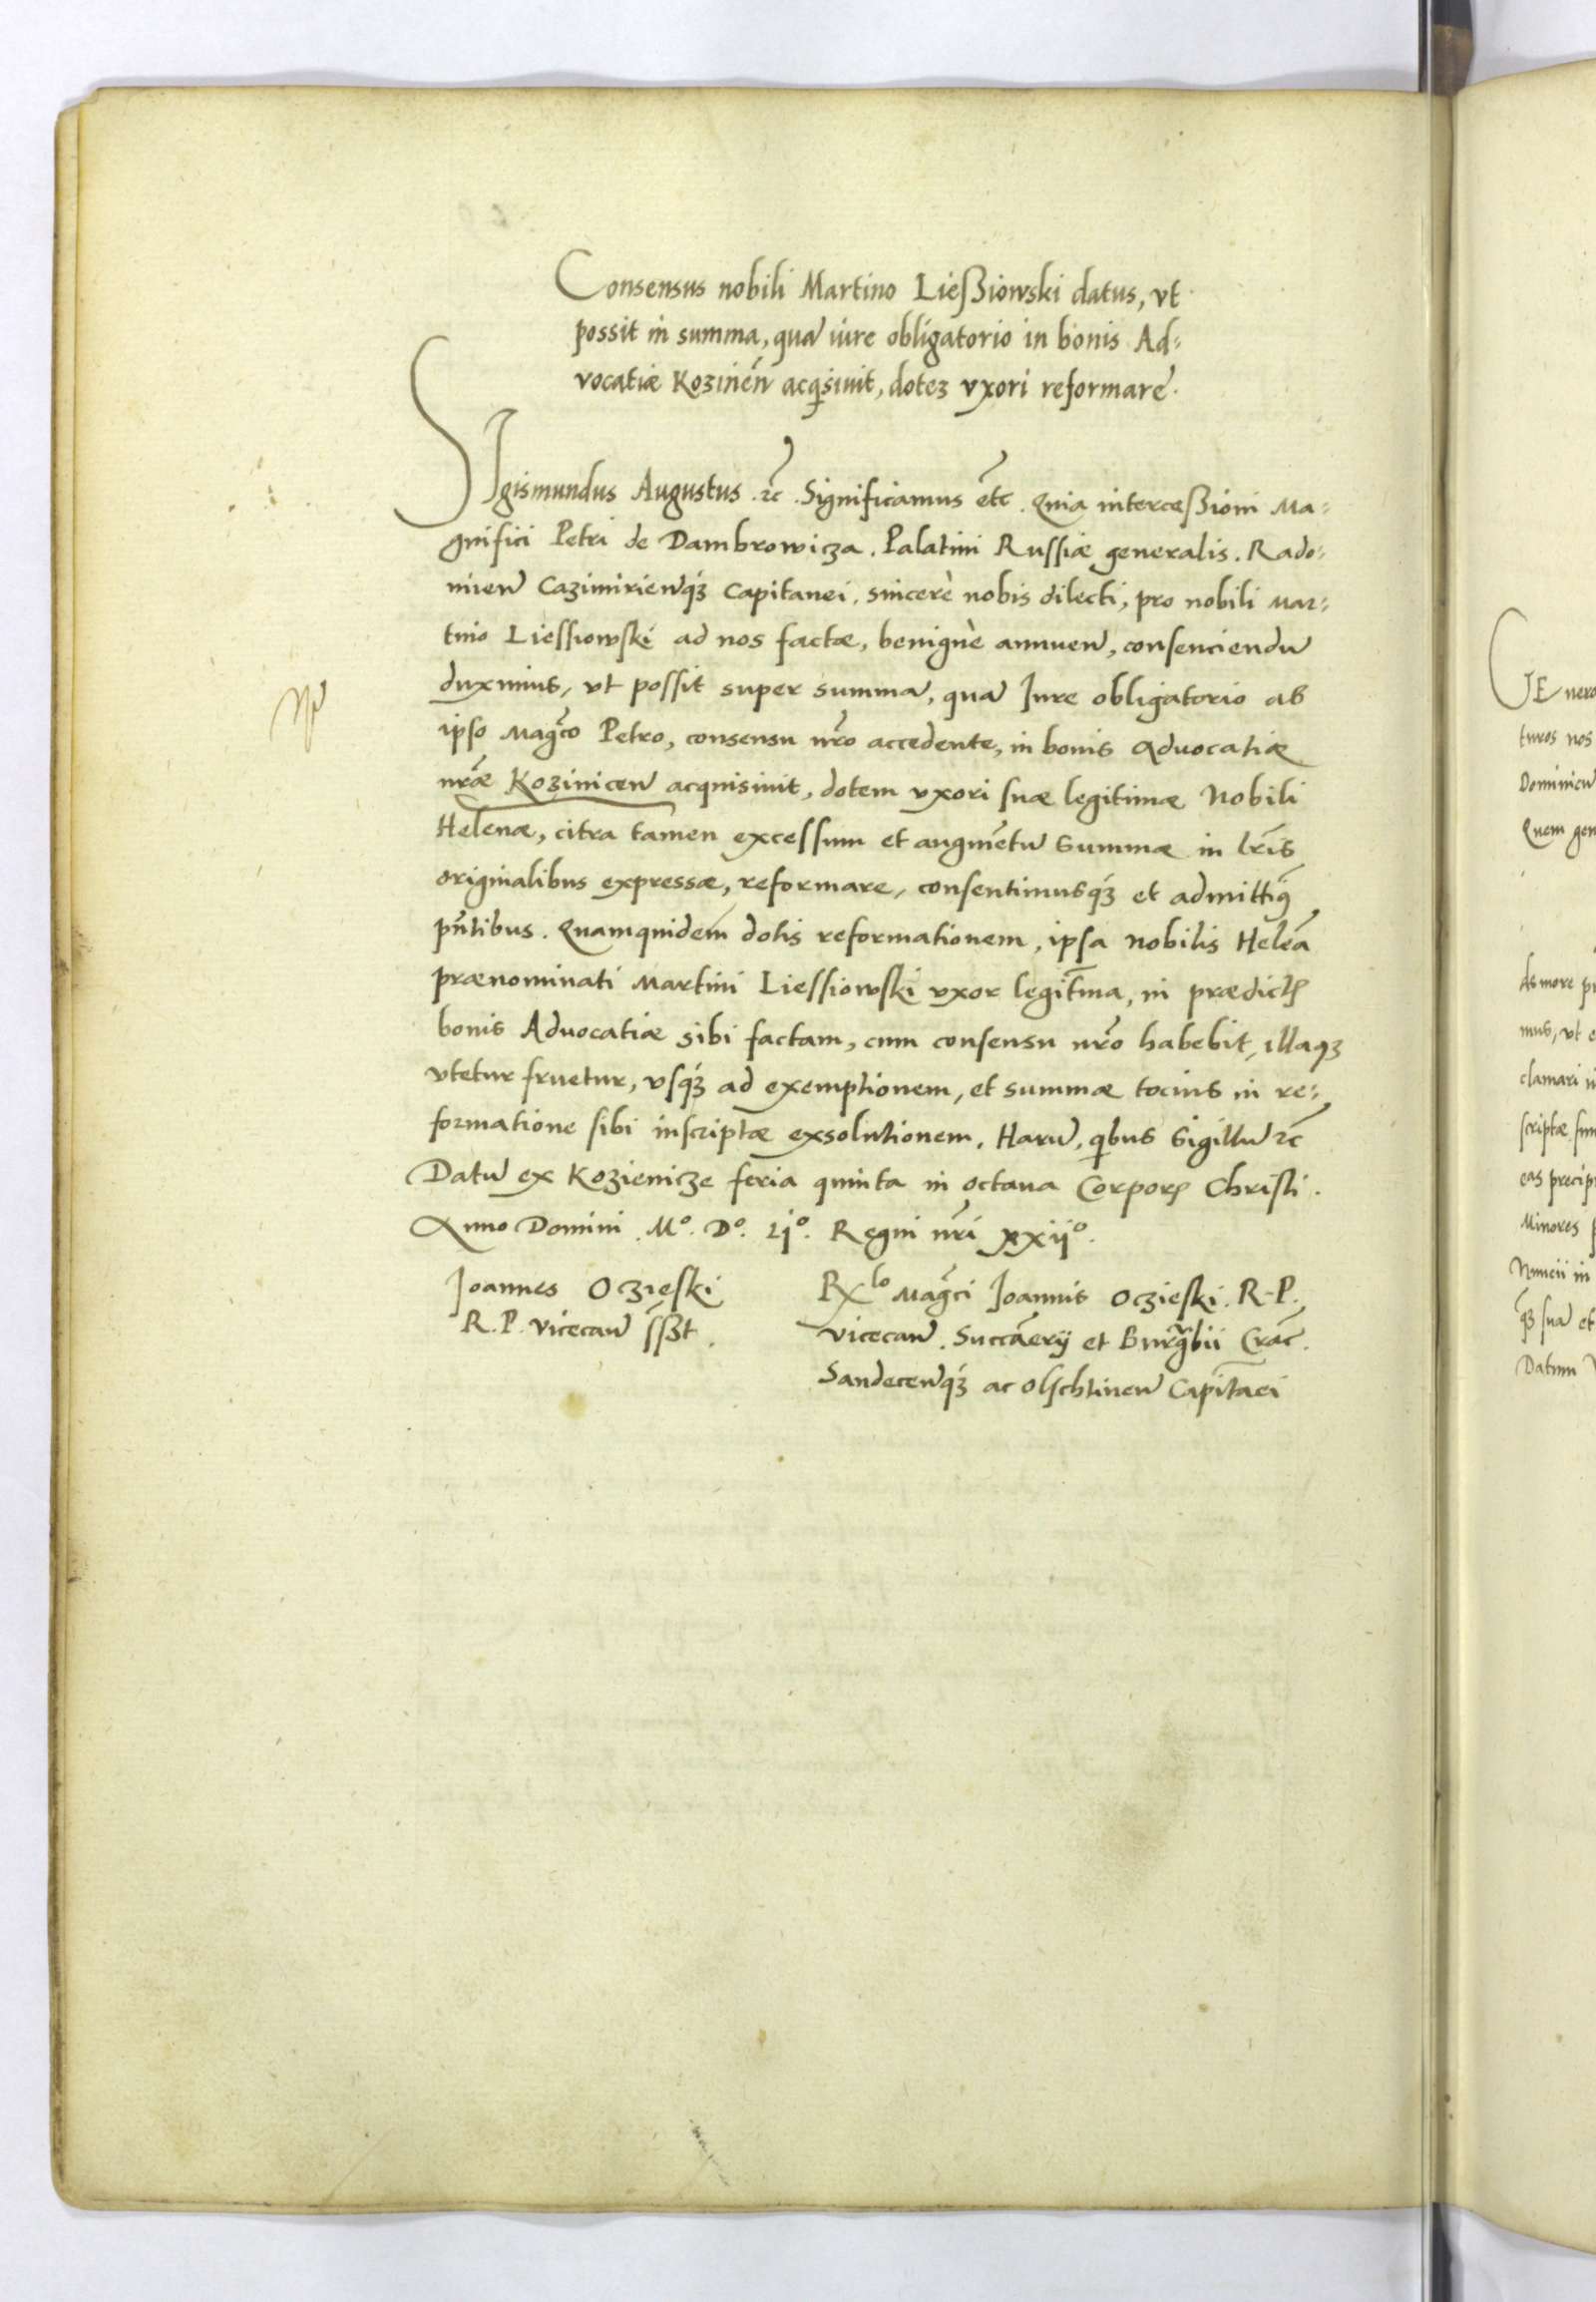 Consensus nobili Martino Ließiowski datus, vt
possit in summa, quā iure obligatorio in bonis Ad:
vocatiæ Kozineñ acqsiuit, dotez vxori reformare.
SIgismundus Augustus .etc. Significamus etc. Quia interceßioni Ma:
gnifici Petri de Dambrowicza. Palatini Russiæ generalis. Rado:
mieñ Cazimirieñqz Capitanei. sincerè nobis dilecti, pro nobili Mar:
tino Liessiowski ad nos factæ, benignè annueñ, consenciendū
duximus, vt possit super summā, quā Iure obligatorio ab
ipso Magco Petro, consensu nro accedente, in bonis Aduocatiæ
nræ Koziniceñ acquisiuit, dotem vxori suæ legitimæ Nobili
Helenæ, citra tamen excessum et augmētū Summæ in lris
originalibus expressæ, reformare, consentimusqz et admittim9
pñtibus. Quamquidem dotis reformationem, ipsa nobilis Helēa
prænominati Martini Liessiowski vxor legitma, in prædictis
bonis Aduocatiæ sibi factam, cum consensu nro habebit, illaqz
vtetur fruetur, vsqz ad exemptionem, et summæ tocius in re:
formatione sibi inscriptæ exsolutionem. Harū, qbus Sigillū etc
Datū ex Kozienicze feria quinta in octaua Corporis Christi.
Anno Domini. Mº. Dº. Ljº. Regni nri xxijº.
Joannes Oczieski
R. P. Vicecañ sszt.
Rlo Magci Joannis Oczieski. R. P.
Vicecañ. Succāerij et Burgrabii Crac.
Sandeceñqz ac Olschtineñ Capitāei
GEnero
turos nos
Dominicū
Quem gen
As more pr
mus, vt e
clamari
scriptæ sum
eas precip
Minores
Nuncii in
qz suā et
Datum